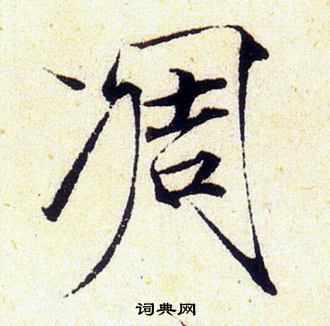 凋
词典网